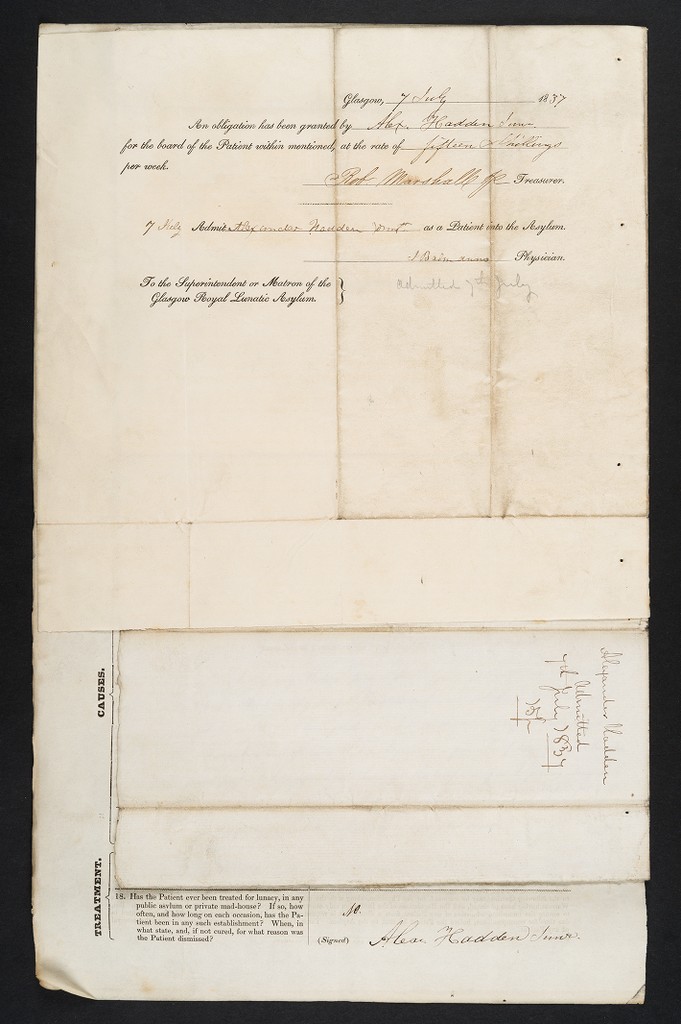 Glasgow, 7 July 1837
An obligation has been granted by Alex. Hadden Junr.
for the board of the Patient within mentioned, at the rate of fifteen Shillings
per week.
Rob Marshall Treasurer.
7 July Admit Alexander Hadden as a Patient into the Asylum.
Physician.
To the Superintendent or Matron of the
Glasgow Royal Lunatic Asylum.
admitted 7th July
CAUSES.
Alexander Hadden
Admitted
7th July 1837
15/
TREATMENT.
18. Has the Patient ever been treated for lunacy, in any
public asylum or private mad-house? If so, how
often, and how long on each occasion, has the Pa-
tient been in any such establishment? When, in
what state, and, if not cured, for what reason was
the Patient dismissed?
No.
(Signed) Alexr. Hadden Junr.